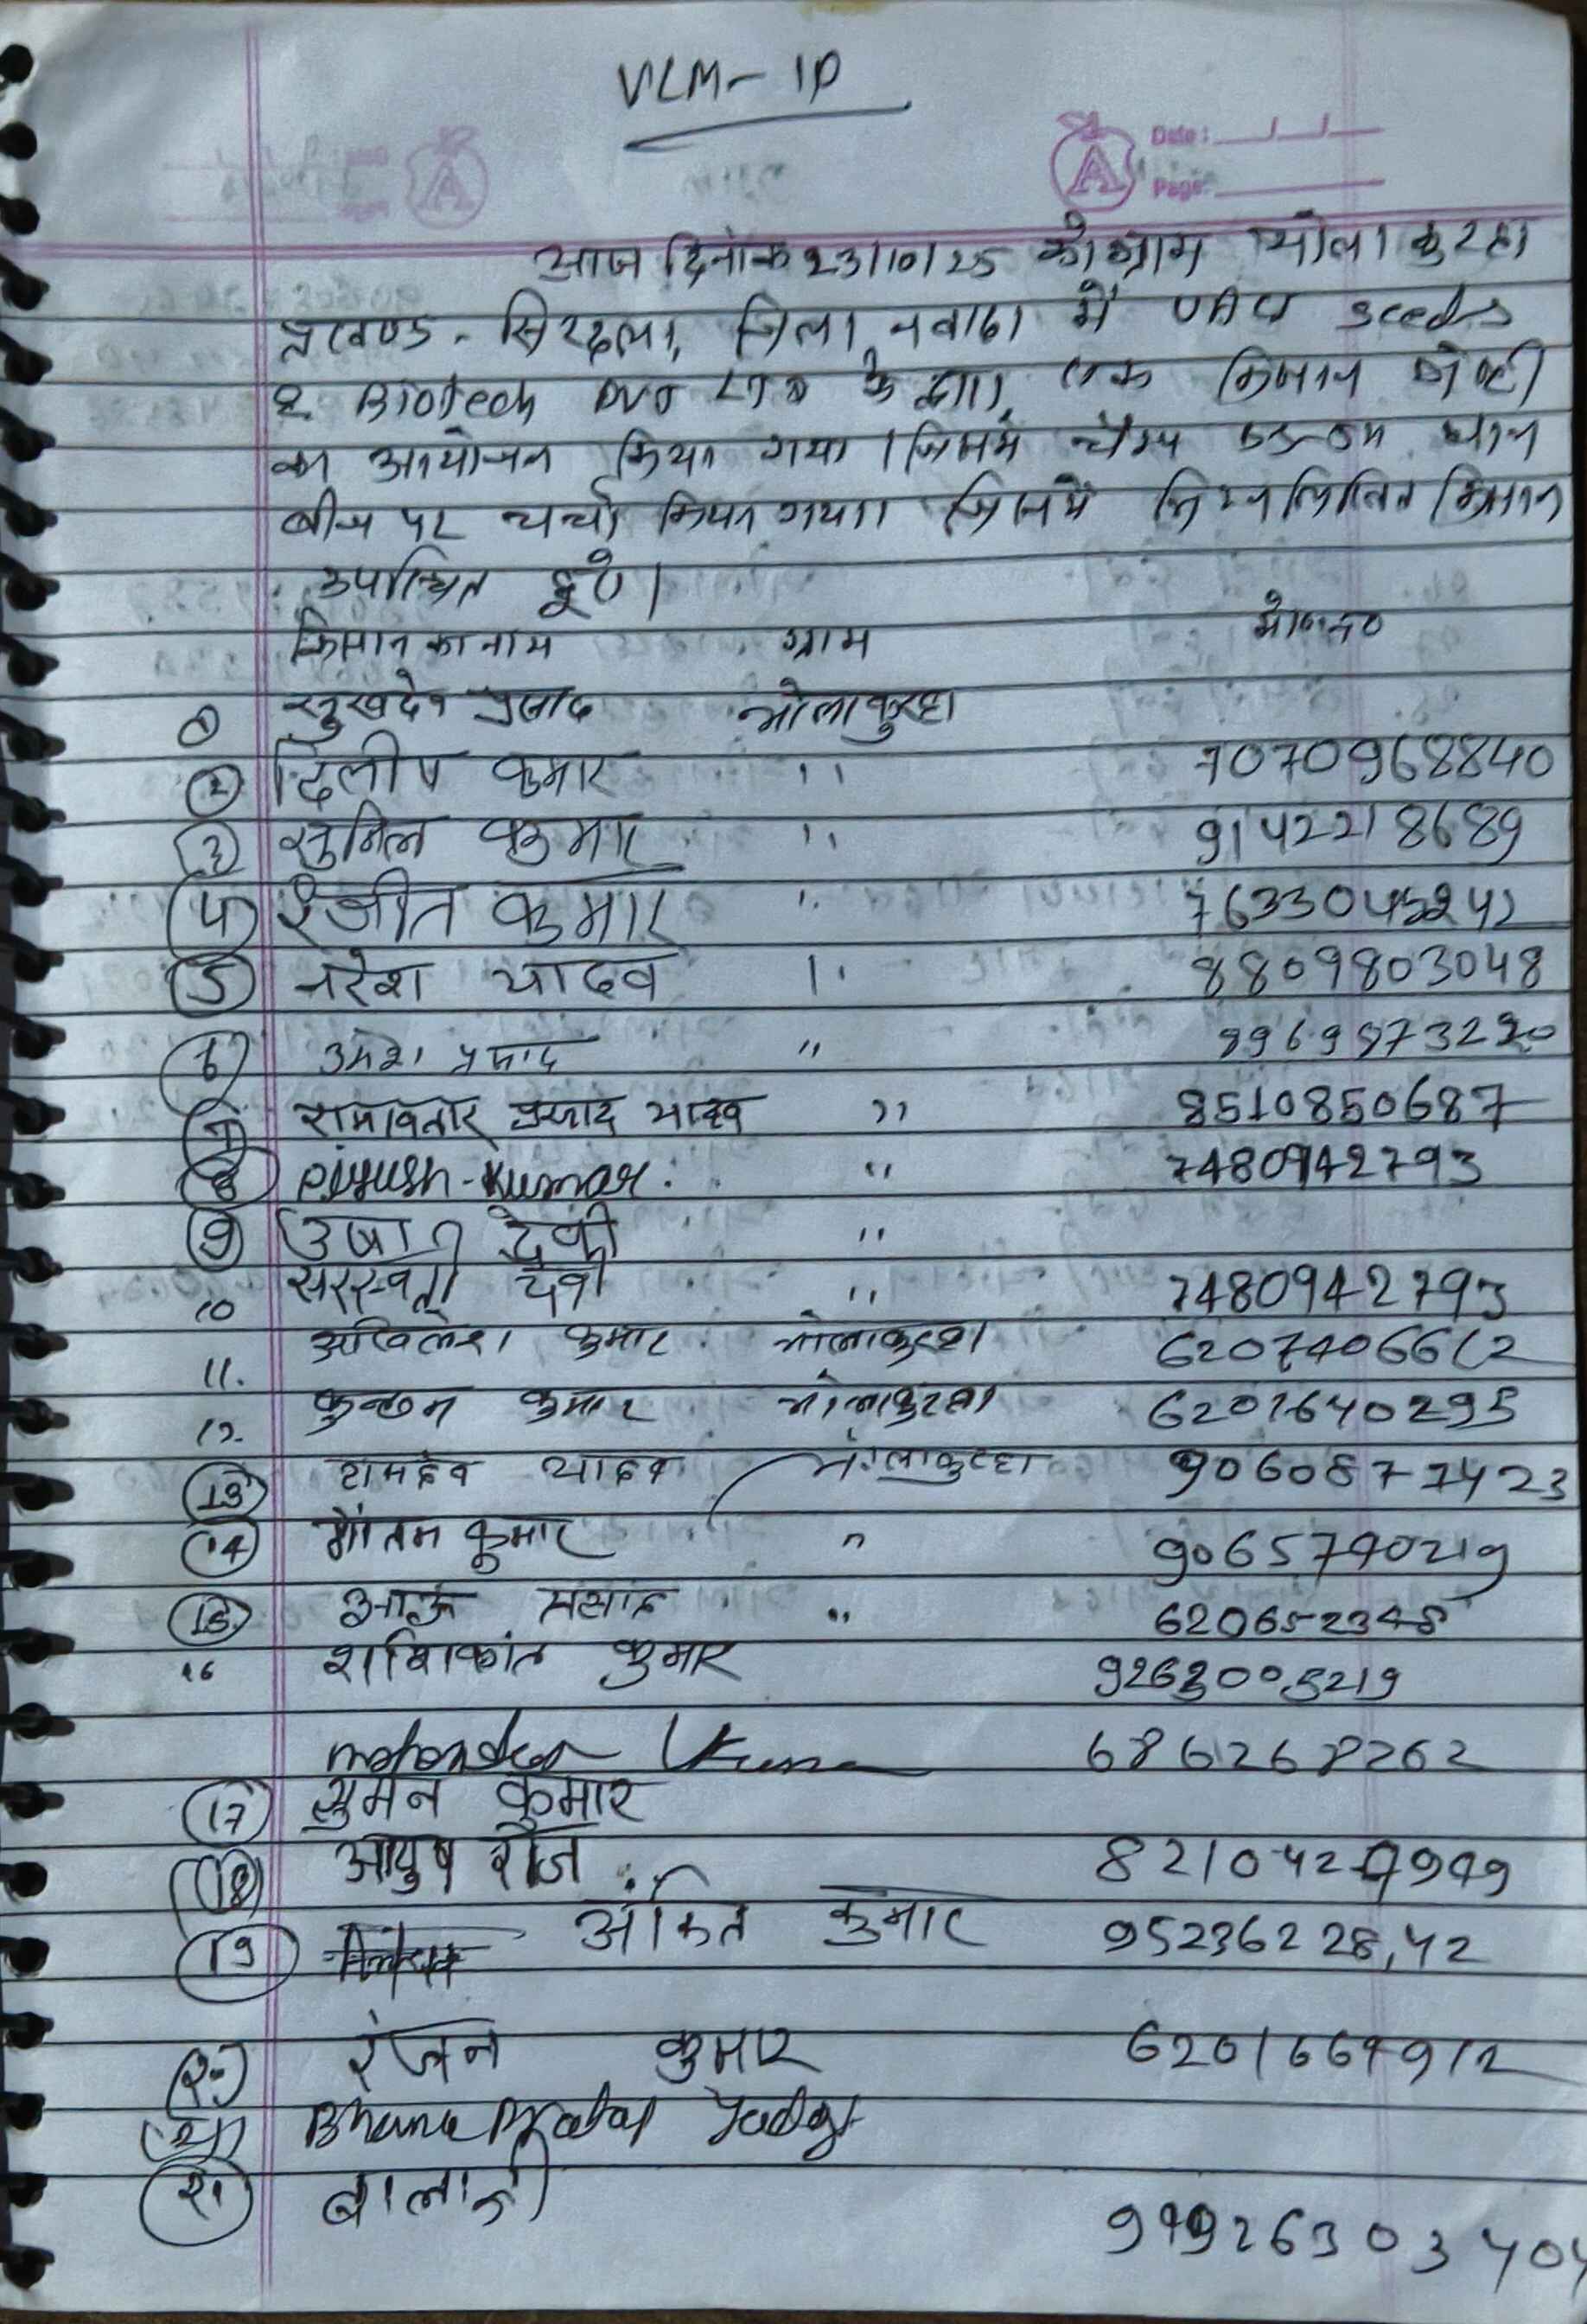 VLM-10
Date:
Page:
आज दिनांक 23/10/25 को ग्राम भोला कुरहा
प्रखण्ड - सिरदला, जिला नवादा में Seeds
& Biotech Pvt LTD के द्वारा एक किसान गोष्टी
का आयोजन किया गया । जिसमें धान
बीज पर चर्चा किया गया। जिसमें निम्नलिखित किसान
उपस्थित हुए।
किसान का नाम ग्राम मो०न०
① सुखदेव प्रसाद भोलाकुरहा
② दिलीप कुमार '' 7070968840
③ सुनिल कुमार '' 9142218689
④ रंजीत कुमार ''
⑤ नरेश यादव '' 8809803048
⑥ उमेश प्रसाद ''
⑦ रामावतार प्रसाद यादव '' 8510850687
⑧ Piyush-Kumar. '' 7480942793
⑨ उषा देवी ''
10 सरस्वती देवी '' 7480942793
11. अखिलेश कुमार भोलाकुरहा 6207406612
12. कुन्दन कुमार भोलाकुरहा 6201640295
⑬ रामदेव यादव भोलाकुरहा 9060877423
⑭ गौतम कुमार '' 9065740219
⑮ प्रसाद '' 620652348
16 शशिकांत कुमार 9263005219
686268262
⑰ सुमन कुमार
⑱ आयुष राज 8210424949
⑲ अंकित कुमार 9523622842
रंजन कुमार 6201667912
Bhanu Pratap Yadav